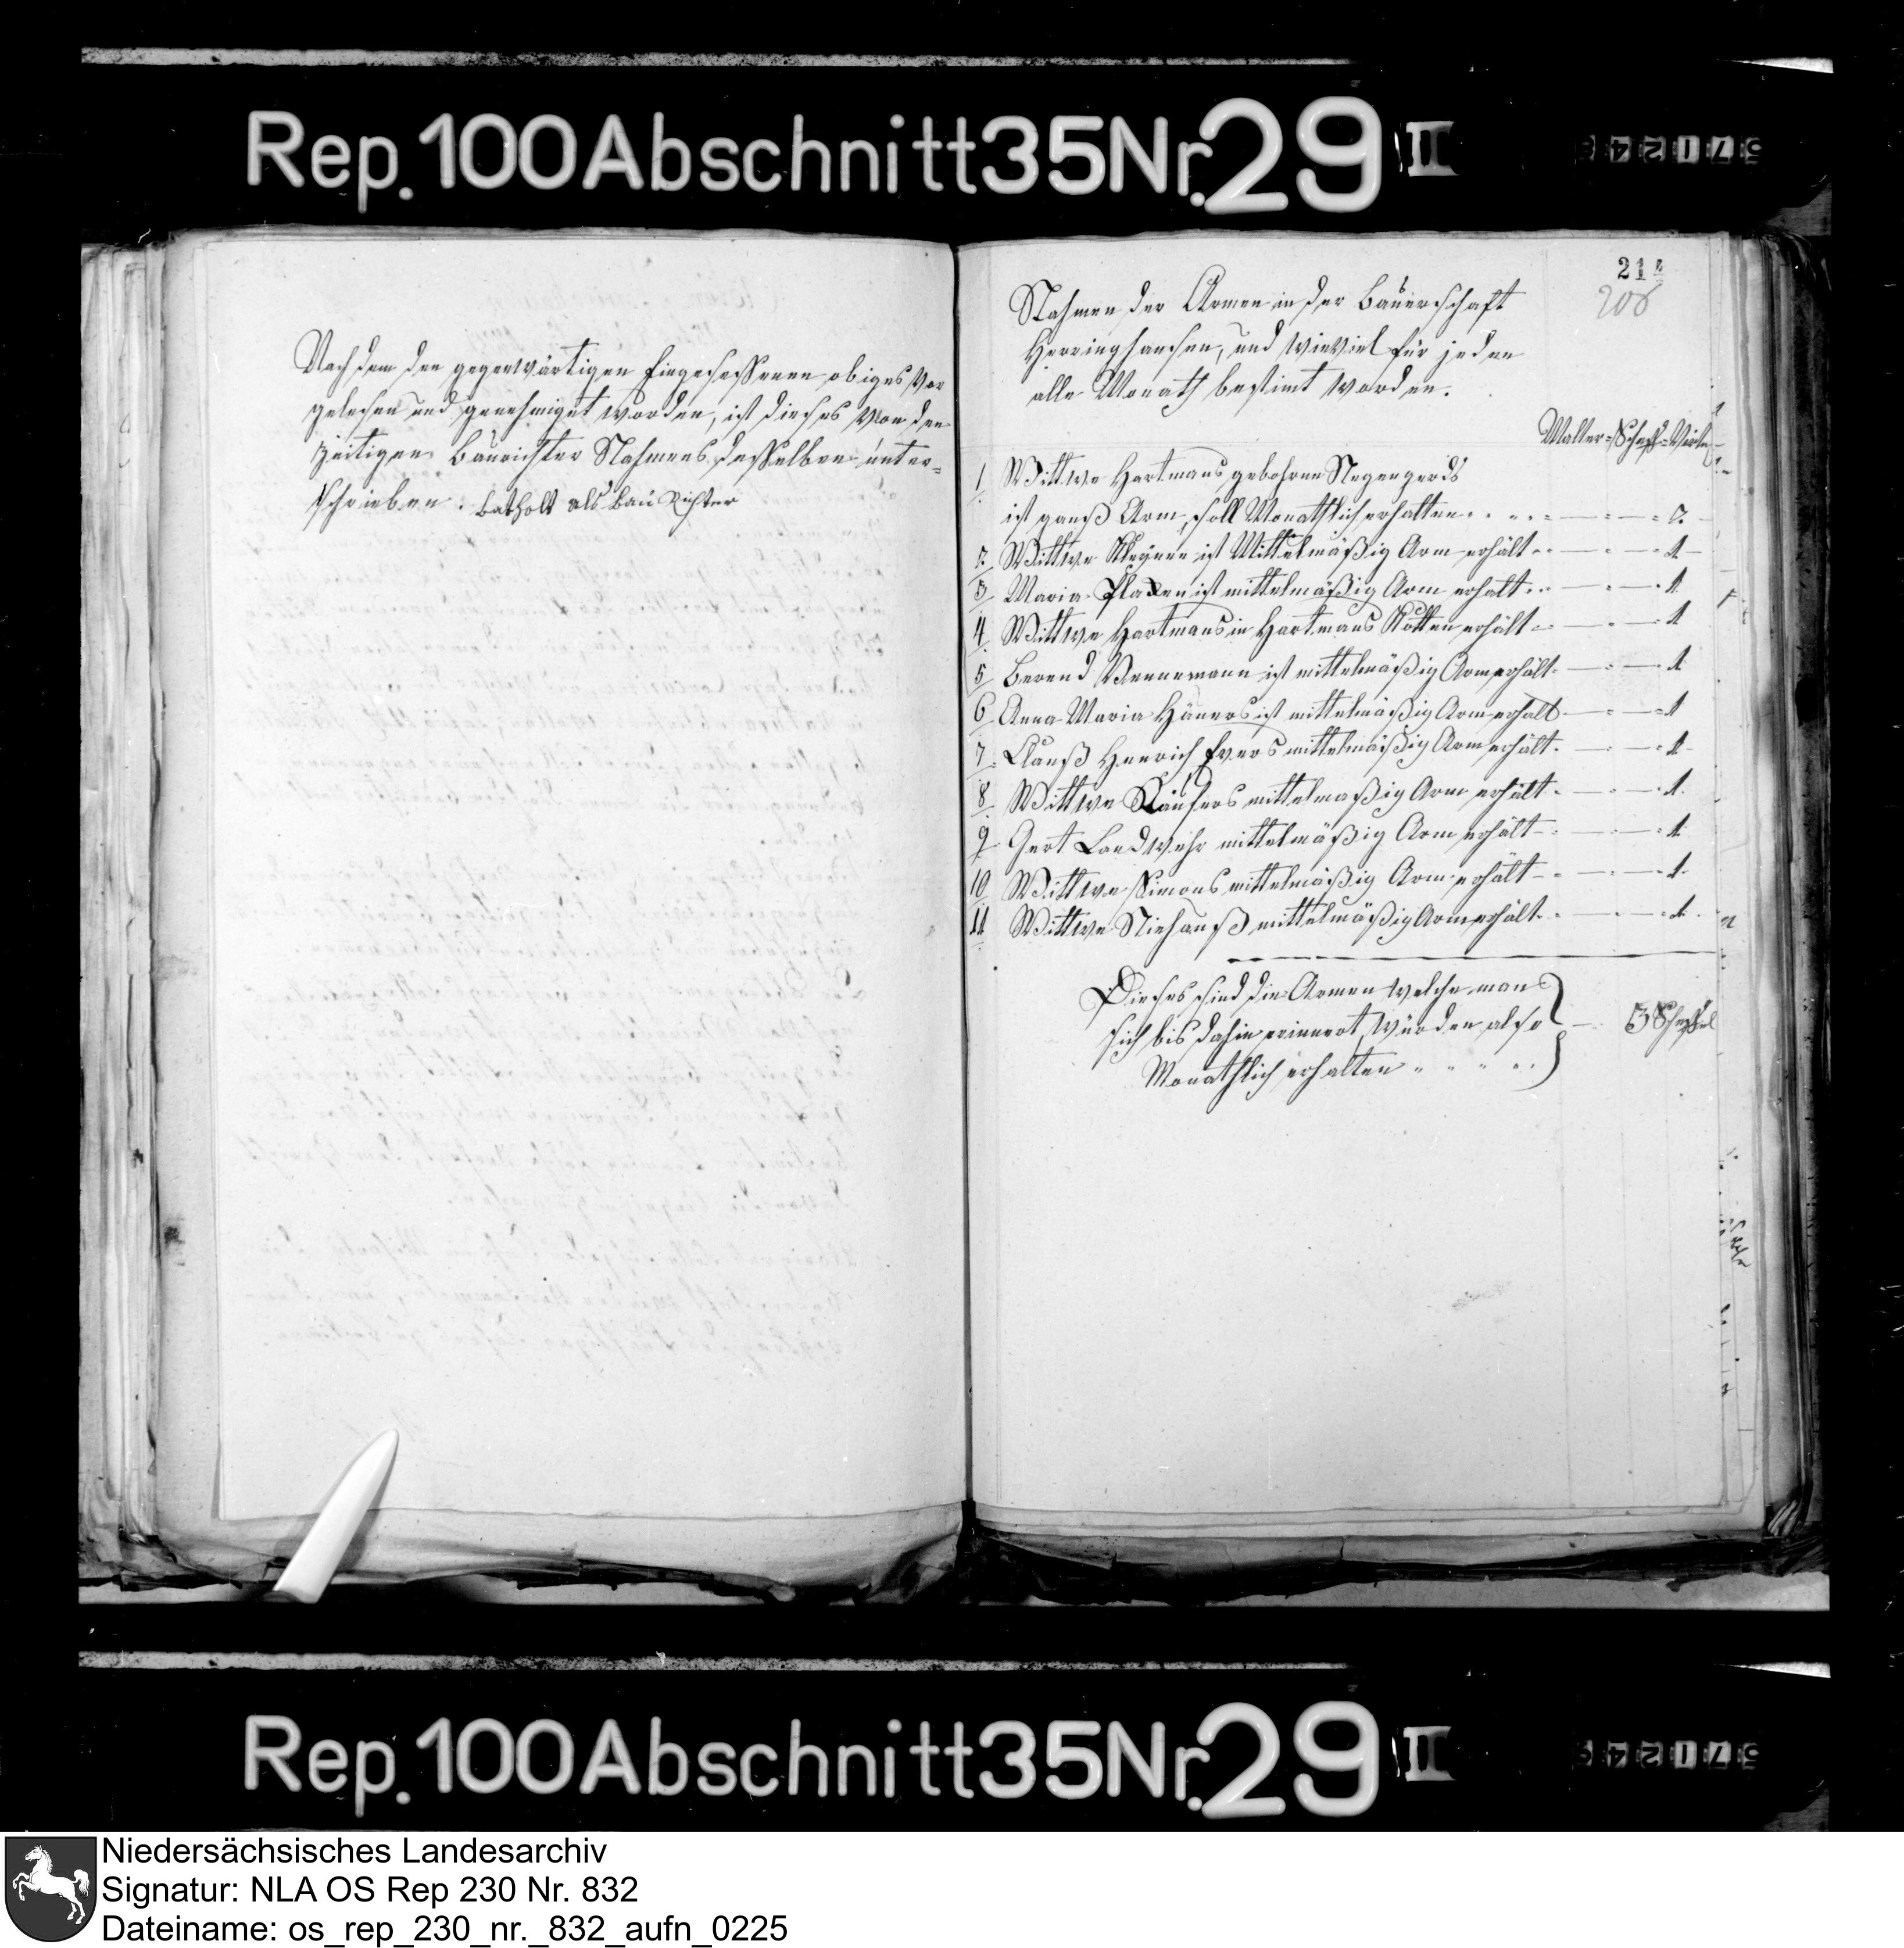 Rep. 100 Abschnitt 35 Nr. 29 II
Nach dem den gegenwärtigen Eingesessenen obiges vor
gelesen und genehmiget worden, ist dieses von den
zeitigen Baurichter Nahmens desselben unter=
schrieben. Batholt als Bau Richter
214
208
Nahmen der Armen in der Bauerschaft
Herringhausen, und wieviel für jeden
alle Monath bestimt worden.
Malter= Scheff= Virtel
1 Wittwe Hartmans gebohren Negengerds
ist ganß Arm, soll Monathlich erhalten 2
2 Wittwe ist Mittelmäßig Arm erhält 1
3 Maria Plaxen ist mittelmäßig Arm erhält 1
4 Wittwe Hartmans in Hartmans Kotten erhält 1
5 Berend Vennemann ist mittelmäßig Arm erhält 1
6 Anna Maria ist mittelmäßig Arm erhält 1
7 Clauß Henrich Evers mittelmäßig Arm erhält 1
8 Wittwe mittelmaßig Arm erhält 1
9 Gert Landwehr mittelmäßig Arm erhält 1
10 Wittwe Simons mittelmäßig Arm erhält 1
11 Wittwe Niehauß mittelmäßig Arm erhält 1
Dieses sind die Armen welche man
sich bis dahin erinnert, würden also
Monathlich erhalten 3 Scheffel
Rep. 100 Abschnitt 35 Nr. 29 II
Niedersächsisches Landesarchiv
Signatur: NLA OS Rep 230 Nr. 832
Dateiname: os_rep_230_nr._832_aufn_0225